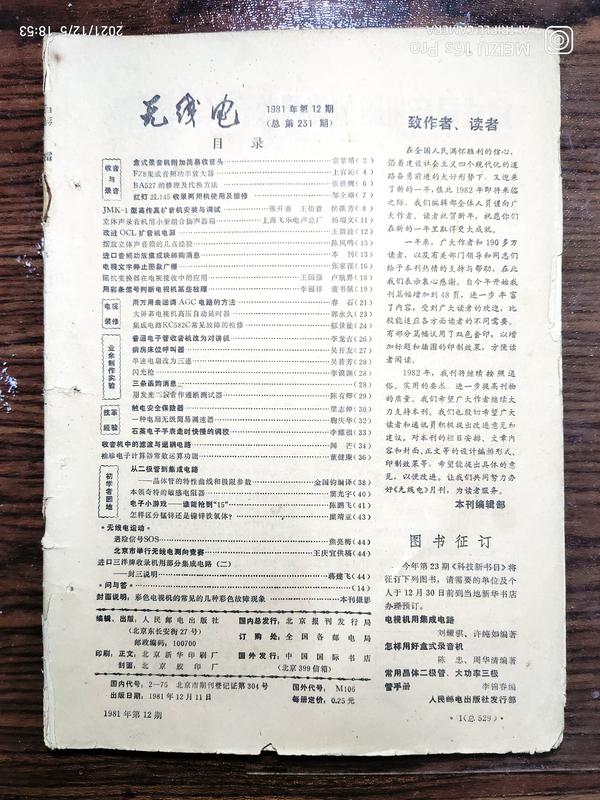 2021/12/5 18:53
MEIZU 16s Pro
AI TRIPLE CAMERA
无线电
1981年第12期
(总第231期)
目录
收音与录音
盒式录音机附加简易收音头 常蒙精(2)
F78集成音频功率放大器 上官沁(4)
BA527的修理及代换方法 张铁鹰(6)
红灯2L145收录两用机使用及维修 邹全璋(7)
JMK-1型高传真扩音机安装与调试 张开善 王伯意 侯薇芳(8)
立体声录音机用小型组合扬声器箱 上海飞乐电声总厂 杨瑞文(11)
改进OCL扩音机电源 王敬波(12)
摆放立体声音箱的几点经验 陈凤鸣(13)
进口音频功放集成块邮购消息 本刊(13)
电视文字静止图象广播 张家谋(16)
阻抗变换器在电视接收中的应用 王国强 卢航界(18)
用彩条信号判断电视机某些故障 李福祥 董书佩(19)
电视装修
用万用表追调AGC电路的方法 春石(21)
大屏幕电视机高压自动延时器 郭永久(23)
集成电路KC582C常见故障的检修 郁景健(24)
业余制作实验
普通电子管收音机改为对讲机 李龙吉(26)
病房床位呼叫器 吴开友(27)
单速电扇改为三速 吴晋芳(28)
闪光枪 李漠濒(28)
三条函购消息 (28)
朋友光二次管作通断测试器 陈有卿(29)
改革经验
触电安全保险器 梁志仲(30)
一种电扇无级简易调速器 鞠庆华(32)
石英电子手表走时快慢的调校 李耀祖(33)
收音机中的滤波与退耦电路 闻芒(34)
袖珍电子计算器常数运算功能 董健康(36)
初学者园地
从二极管到集成电路
——晶体管的特性曲线和极限参数 金国钧编译(38)
本领奇特的敏感电阻器 窦光宇(40)
电子小游戏——谁能抢到“15” 陈鹏飞(41)
怎样区分锰锌还是镍锌铁氧体? 糜靖亚(43)
·无线电运动·
遇险信号SOS 焦亮梅(44)
北京市举行无线电测向竞赛 王庆宜供稿(44)
进口三洋牌收录机用部分集成电路(二)
——封三说明 蒋建飞(44)
·问与答· (14)
封面说明:彩色电视机的常见的几种彩色故障现象 本刊摄影
编辑、出版:人民邮电出版社
(北京东长安街27号)
邮政编码:100700
印刷:正文:北京新华印刷厂
封面:北京胶印厂
国内总发行:北京报刊发行局
订购处:全国各邮电局
国外发行:中国国际书店
(北京399信箱)
国内代号:2—75 北京市期刊登记证第304号
出版日期:1981年12月11日
国外代号:M106
每册定价:0.25元
1981年第12期
致作者、读者
在全国人民满怀胜利的信心,
沿着建设社会主义四个现代化的道
路奋勇前进的大好形势下,又迎来
了新的一年,值此1982年即将来临
之际,我们编辑部全体人员谨向广
大作者、读者祝贺新年。祝愿你们
在新的一年里取得更大成就。
一年来,广大作者和190多万
读者,以及有关部门领导和同志们
给予本刊热情的支持与帮助,在此
我们表示衷心感谢。自今年开始我
刊篇幅增加到48页,进一步丰富
了内容,受到广大读者的欢迎,比
较能适应各方面读者的不同需要。
有部分篇幅试用了双色套印,以增
加标题和插图的印制效果,方便读
者阅读。
1982年,我刊将继续按照通
俗、实用的要点,进一步提高刊物
的质量。我们希望广大作者继续大
力支持本刊。我们也殷切希望广大
读者和通讯员积极提出改进意见和
建议。对本刊的栏目安排、文章内
容和封面、正文等的设计编排形式、
印制效果等,希望能提出具体的意
见,以便改进。让我们共同努力办
好《无线电》月刊,为读者服务。
本刊编辑部
图书征订
今年第23期《科技新书目》将
征订下列图书,请需要的单位及个
人于12月30日前到当地新华书店
办理预订。
电视机用集成电路
刘耀祺、许纯如编著
怎样用好盒式录音机
陈忠、周华清编著
常用晶体二极管、大功率三极
管手册 李锦春编
人民邮电出版社发行部
·1(总529)·